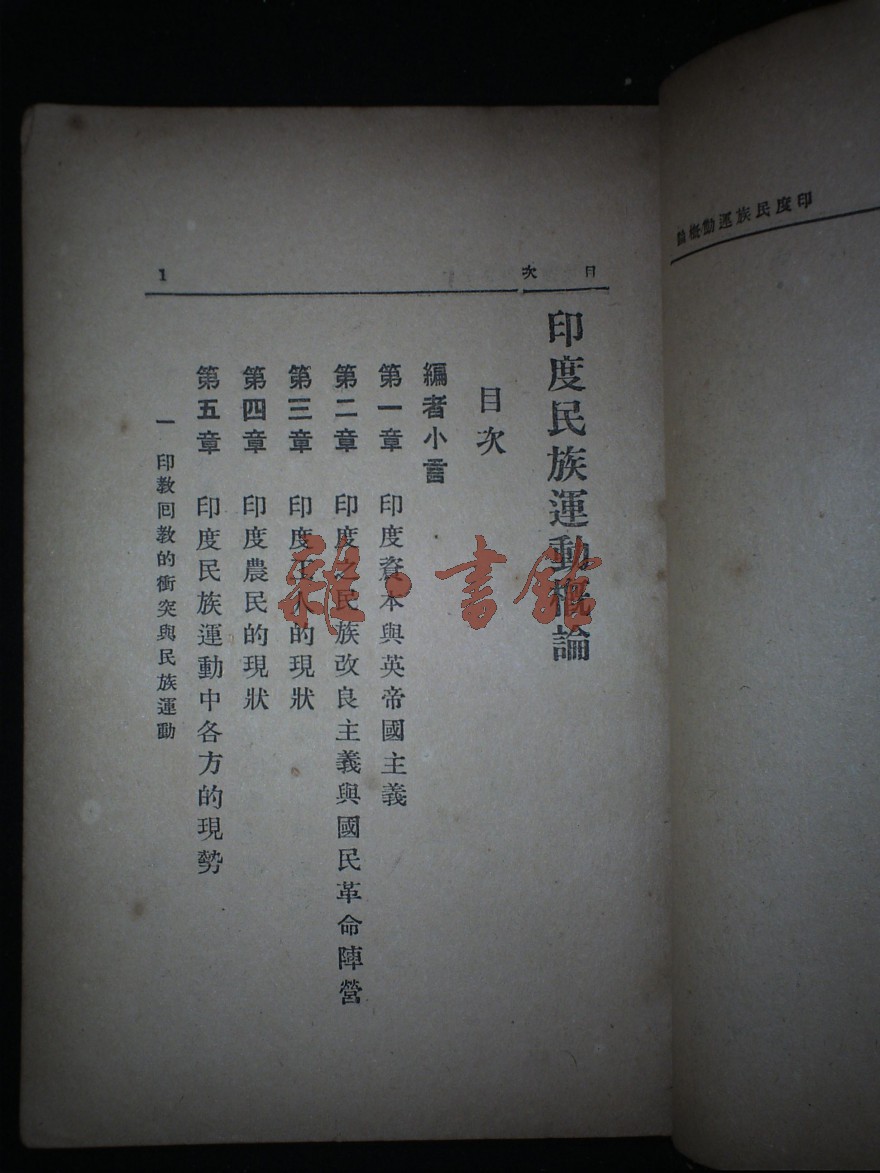 印度民族運動概論
目次
印度民族運動概論
目次
編者小言
第一章 印度資本與英帝國主義
第二章 印度之民族改良主義與國民革命陣營
第三章 印度工人的現狀
第四章 印度農民的現狀
第五章 印度民族運動中各方的現勢
一 印教囘教的衝突與民族運動
1
雜·書館